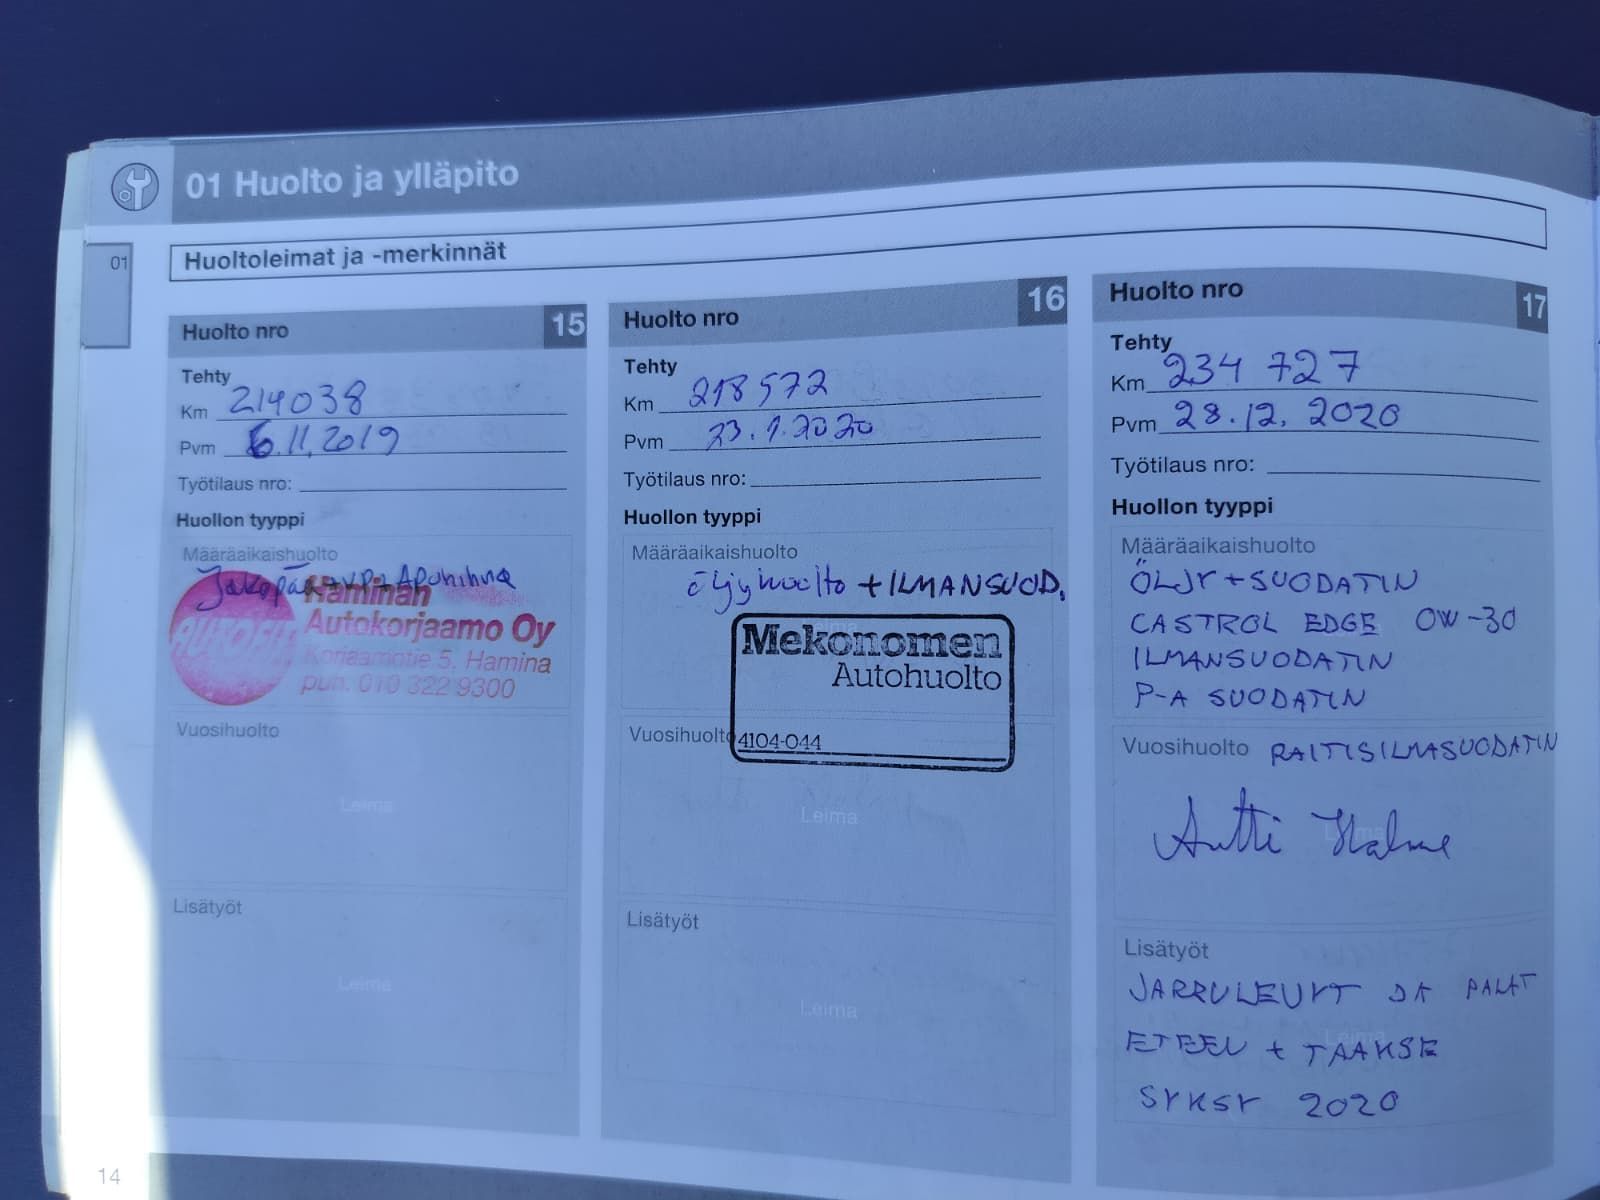 01 Huolto ja ylläpito
01
Huoltoleimat ja -merkinnät
Huolto nro 15
Tehty
Km 214038
Pvm 6.11.2019
Työtilaus nro:
Huollon tyyppi
Määräaikaishuolto
Jakopää + VP + Apuhihna
Haminan
AUTOFIT Autokorjaamo Oy
Korjaamotie 5. Hamina
puh. 010 322 9300
Vuosihuolto
Leima
Lisätyöt
Leima
Huolto nro 16
Tehty
Km 218572
Pvm 23.1.2020
Työtilaus nro:
Huollon tyyppi
Määräaikaishuolto
öljyhuolto + ILMANSUOD.
Leima
Mekonomen
Autohuolto
Vuosihuolto 4104-044
Leima
Lisätyöt
Leima
Huolto nro 17
Tehty
Km 234 727
Pvm 28.12. 2020
Työtilaus nro:
Huollon tyyppi
Määräaikaishuolto
ÖLJY + SUODATIN
CASTROL EDGE 0W-30
ILMANSUODATIN
P-A SUODATIN
Vuosihuolto RAITISILMASUODATIN
Leima
Antti Halme
Lisätyöt
JARRULEVYT JA PALAT
Leima
ETEEN + TAAKSE
SYKSY 2020
14